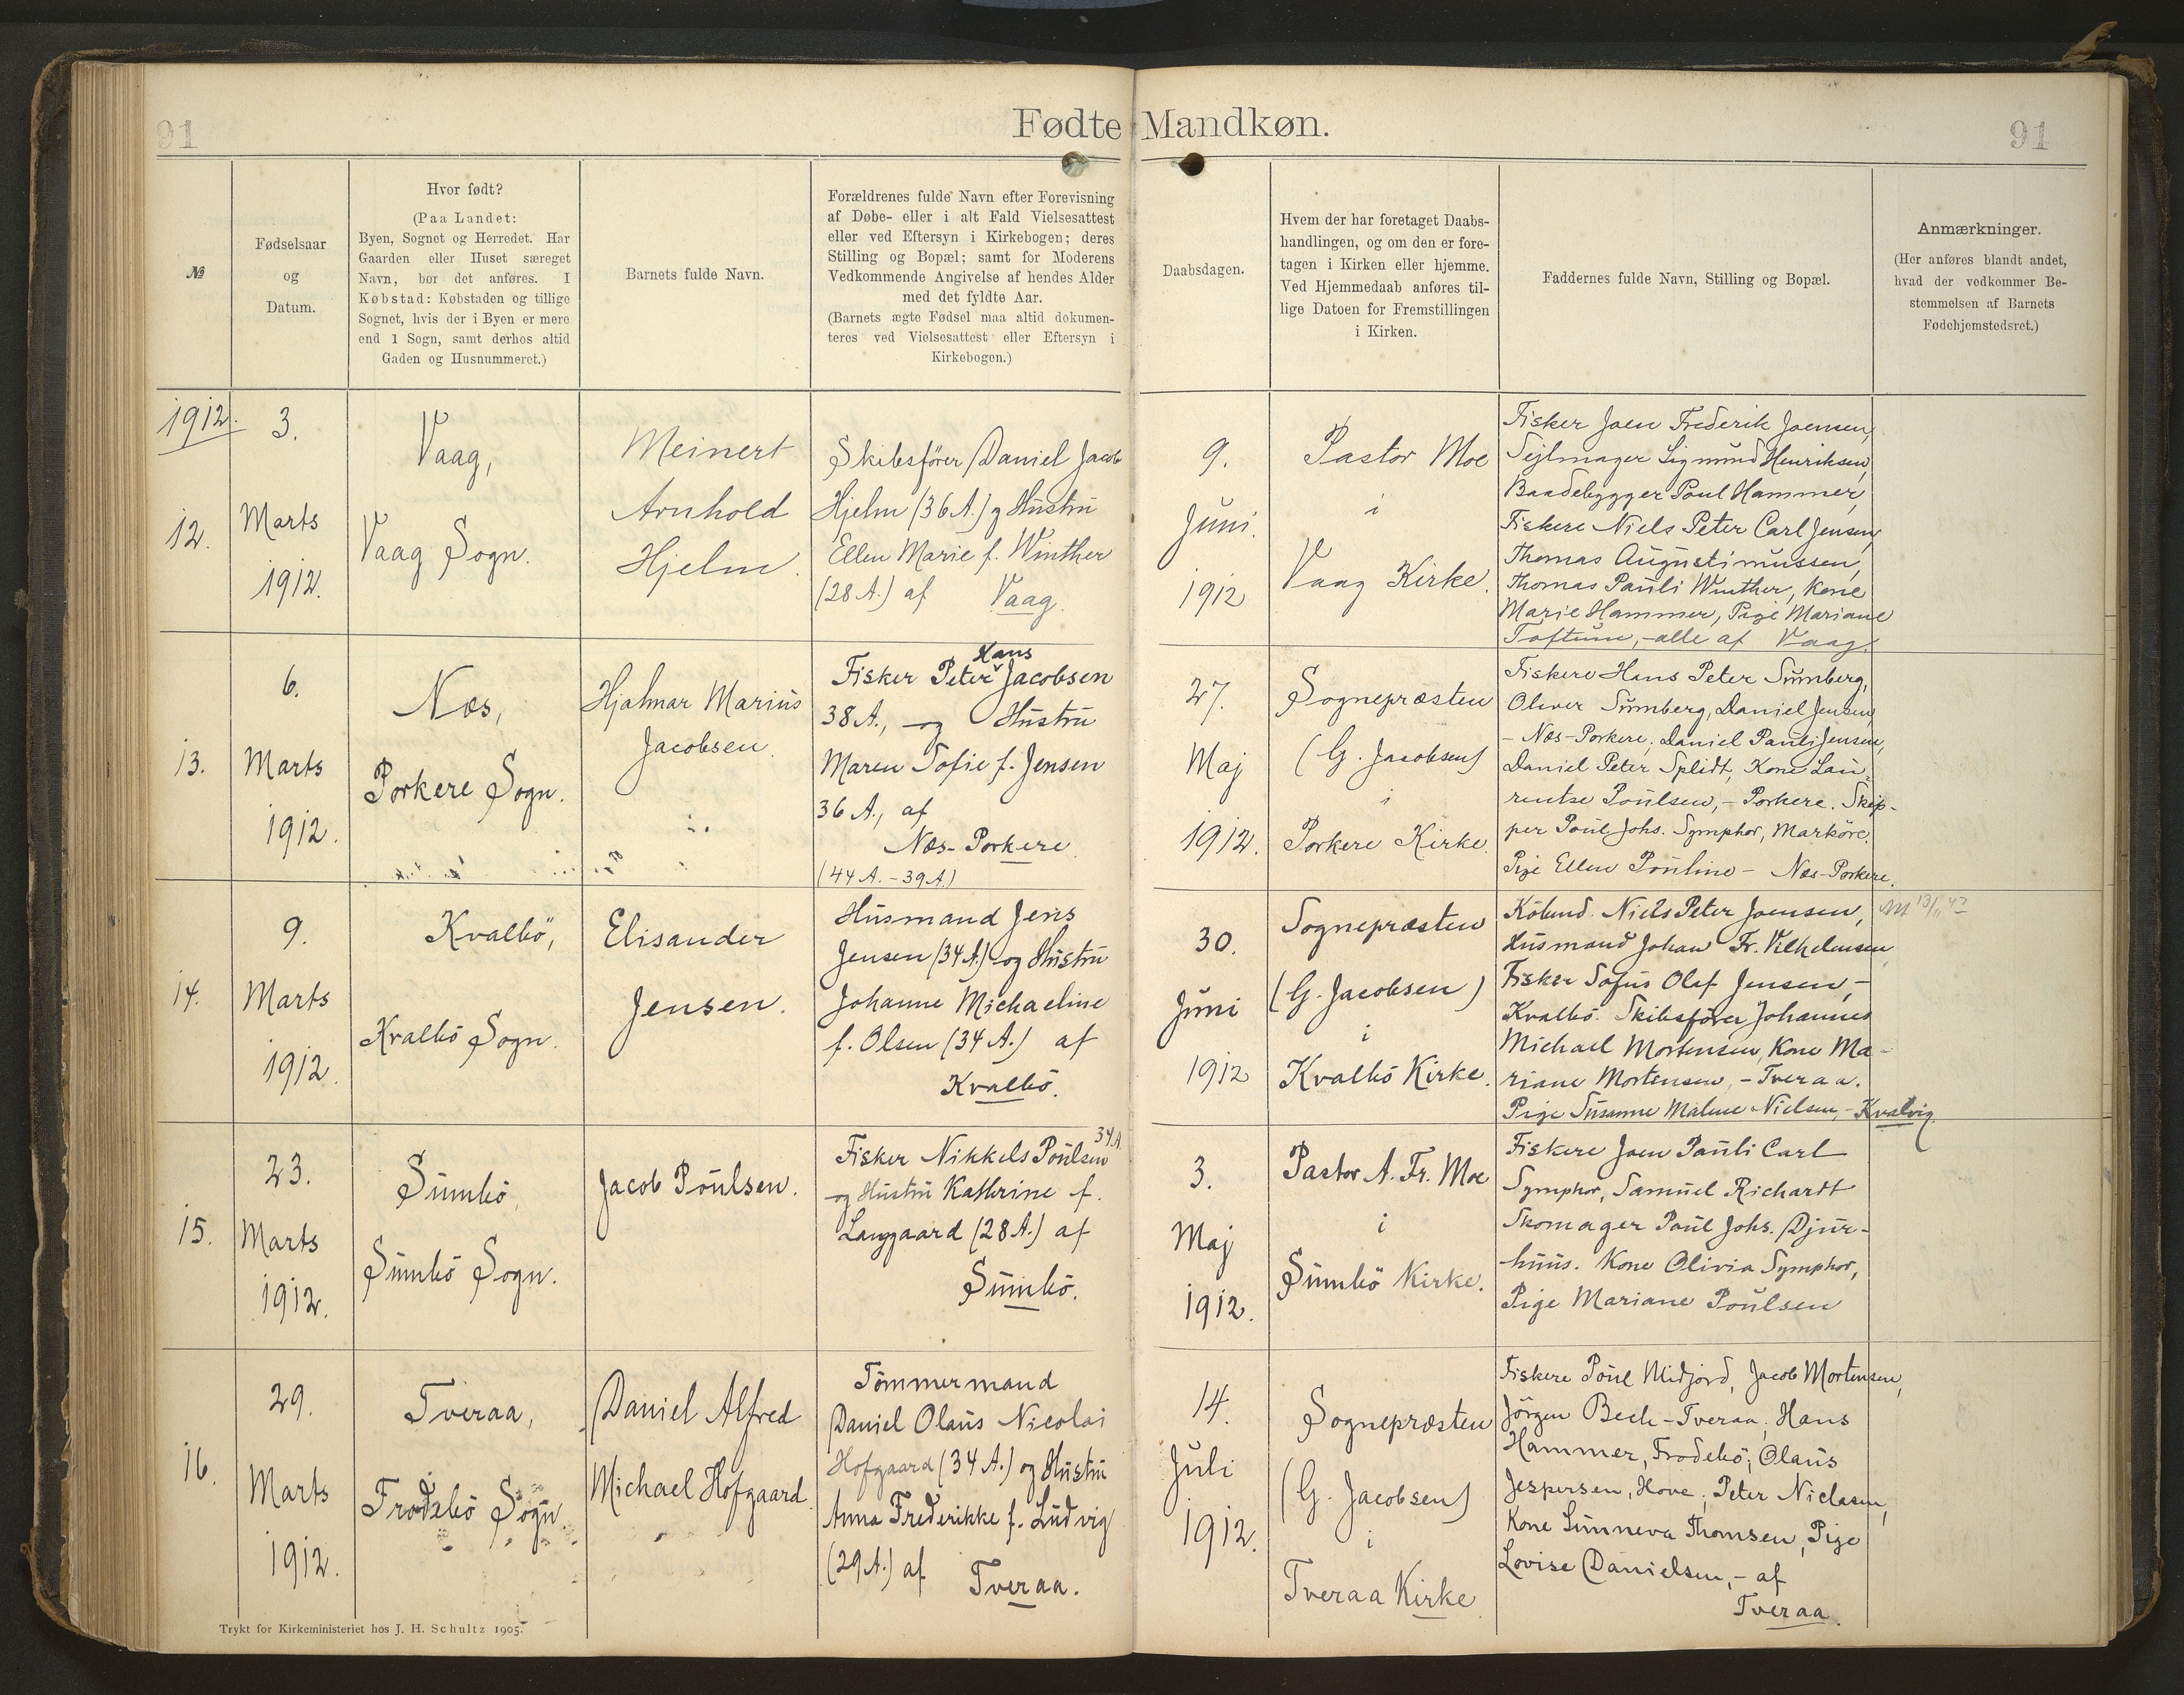 91
Fødte Mandkøn.
91
№
Fødselsaar
og
Datum.
Hvor født?
(Paa Landet:
Byen, Sognet og Herredet. Har
Gaarden eller Huset særeget
Navn, bør det anføres. I
Købstad: Købstaden og tillige
Sognet, hvis der i Byen er mere
end 1 Sogn, samt derhos altid
Gaden og Husnummeret.)
Barnets fulde Navn.
Forældrenes fulde Navn efter Forevisning
af Døbe- eller i alt Fald Vielsesattest
eller ved Eftersyn i Kirkebogen; deres
Stilling og Bopæl; samt for Moderens
Vedkommende Angivelse af hendes Alder
med det fyldte Aar.
(Barnets ægte Fødsel maa altid dokumen-
teres ved Vielsesattest eller Eftersyn i
Kirkebogen.)
Daabsdagen.
Hvem der har foretaget Daabs-
handlingen, og om den er fore-
tagen i Kirken eller hjemme.
Ved Hjemmedaab anføres til-
lige Datoen for Fremstillingen
i Kirken.
Faddernes fulde Navn, Stilling og Bopæl.
Anmærkninger.
(Her anføres blandt andet,
hvad der vedkommer Be-
stemmelsen af Barnets
Fødehjemstedsret.)
1912.
12.
3.
Marts
1912.
Vaag,
Vaag Sogn.
Meinert
Arnhold
Hjelm.
Skibsfører Daniel Jacob
Hjelm (36 A.) og Hustru
Ellen Marie f. Winther
(28 A.) af Vaag.
9.
Juni.
1912
Pastor Moe
i
Vaag Kirke.
Fisker Joen Frederik Joensen,
Sejlmager Sigmund Henriksen,
Baadebygger Poul Hammer,
Fiskere Niels Peter Carl Jensen,
Thomas Augustinussen,
Thomas Pauli Winther, Kone
Marie Hammer, Pige Mariane
Toftum, - alle af Vaag.
13.
6.
Marts
1912.
Næs,
Porkere Sogn.
Hjalmar Marius
Jacobsen.
Hans
Fisker Peter Jacobsen
38 A., og Hustru
Maren Sofie f. Jensen
36 A., af
Næs-Porkere
(44 A. - 39 A.)
27.
Maj
1912.
Sognepræsten
(G. Jacobsen)
i
Porkere Kirke.
Fiskere Hans Peter Sumberg,
Oliver Sumberg, Daniel Jensen
- Næs-Porkere; Daniel Pauli Jensen,
Daniel Peter Splidt, Kone Lau-
rentse Poulsen, - Porkere. Skip-
per Poul Johs. Symphor, Marköre.
Pige Ellen Pouline - Næs-Porkere.
14.
9.
Marts
1912.
Kvalbö,
Kvalbö Sogn.
Elisander
Jensen.
Husmand Jens
Jensen (34 A.) og Hustru
Johanne Michaeline
f. Olsen (34 A.) af
Kvalbö.
30.
Juni
1912
Sognepræsten
(G. Jacobsen)
i
Kvalbö Kirke.
Köbmd. Niels Peter Joensen,
Husmand Johan Fr. Vilhelmsen
Fisker Sofus Olaf Jensen, -
Kvalbö. Skibsfører Johannes
Michael Mortensen, Kone Ma-
riane Mortensen, - Tveraa.
Pige Susanne Malene Nielsen, - Kvalvig.
15.
23.
Marts
1912.
Sumbö,
Sumbö Sogn.
Jacob Poulsen.
34 A
Fisker Nikkels Poulsen
og Hustru Kathrine f.
Langgaard (28 A.) af
Sumbö.
3.
Maj
1912.
Pastor A. Fr. Moe
i
Sumbö Kirke.
Fiskere Joen Pauli Carl
Symphor, Samuel Richardt
Skomager Poul Johs. Djur-
huus. Kone Olivia Symphor,
Pige Mariane Poulsen
16.
29.
Marts
1912.
Tveraa,
Frodebö Sogn.
Daniel Alfred
Michael Hofgaard.
Tömmermand
Daniel Olaus Nicolai
Hofgaard (34 A.) og Hustru
Anna Frederikke f. Ludvig
(29 A.) af Tveraa.
14.
Juli
1912.
Sognepræsten
(G. Jacobsen)
i
Tveraa Kirke
Fiskere Poul Midjord, Jacob Mortensen,
Jörgen Bech - Tveraa; Hans
Hammer, Frodebö; Olaus
Jespersen, Hove; Peter Niclasen,
Kone Sunneva Thomsen, Pige
Lovise Danielsen, - af
Tveraa.
Trykt for Kirkeministeriet hos J. H. Schultz 1905.